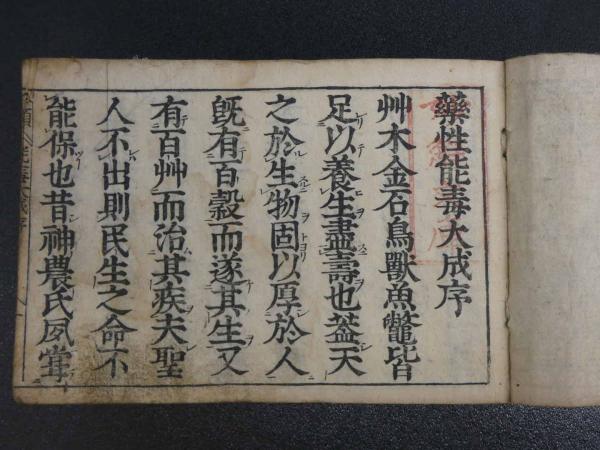 藥性能毒大成序
艸木金石鳥獸魚鼈皆
足以養生盡壽也蓋天
之於生物固以厚於人
既有百穀而遂其生又
有百艸而治其疾夫聖
人不出則民生之命不
能保也昔神農氏夙嘗